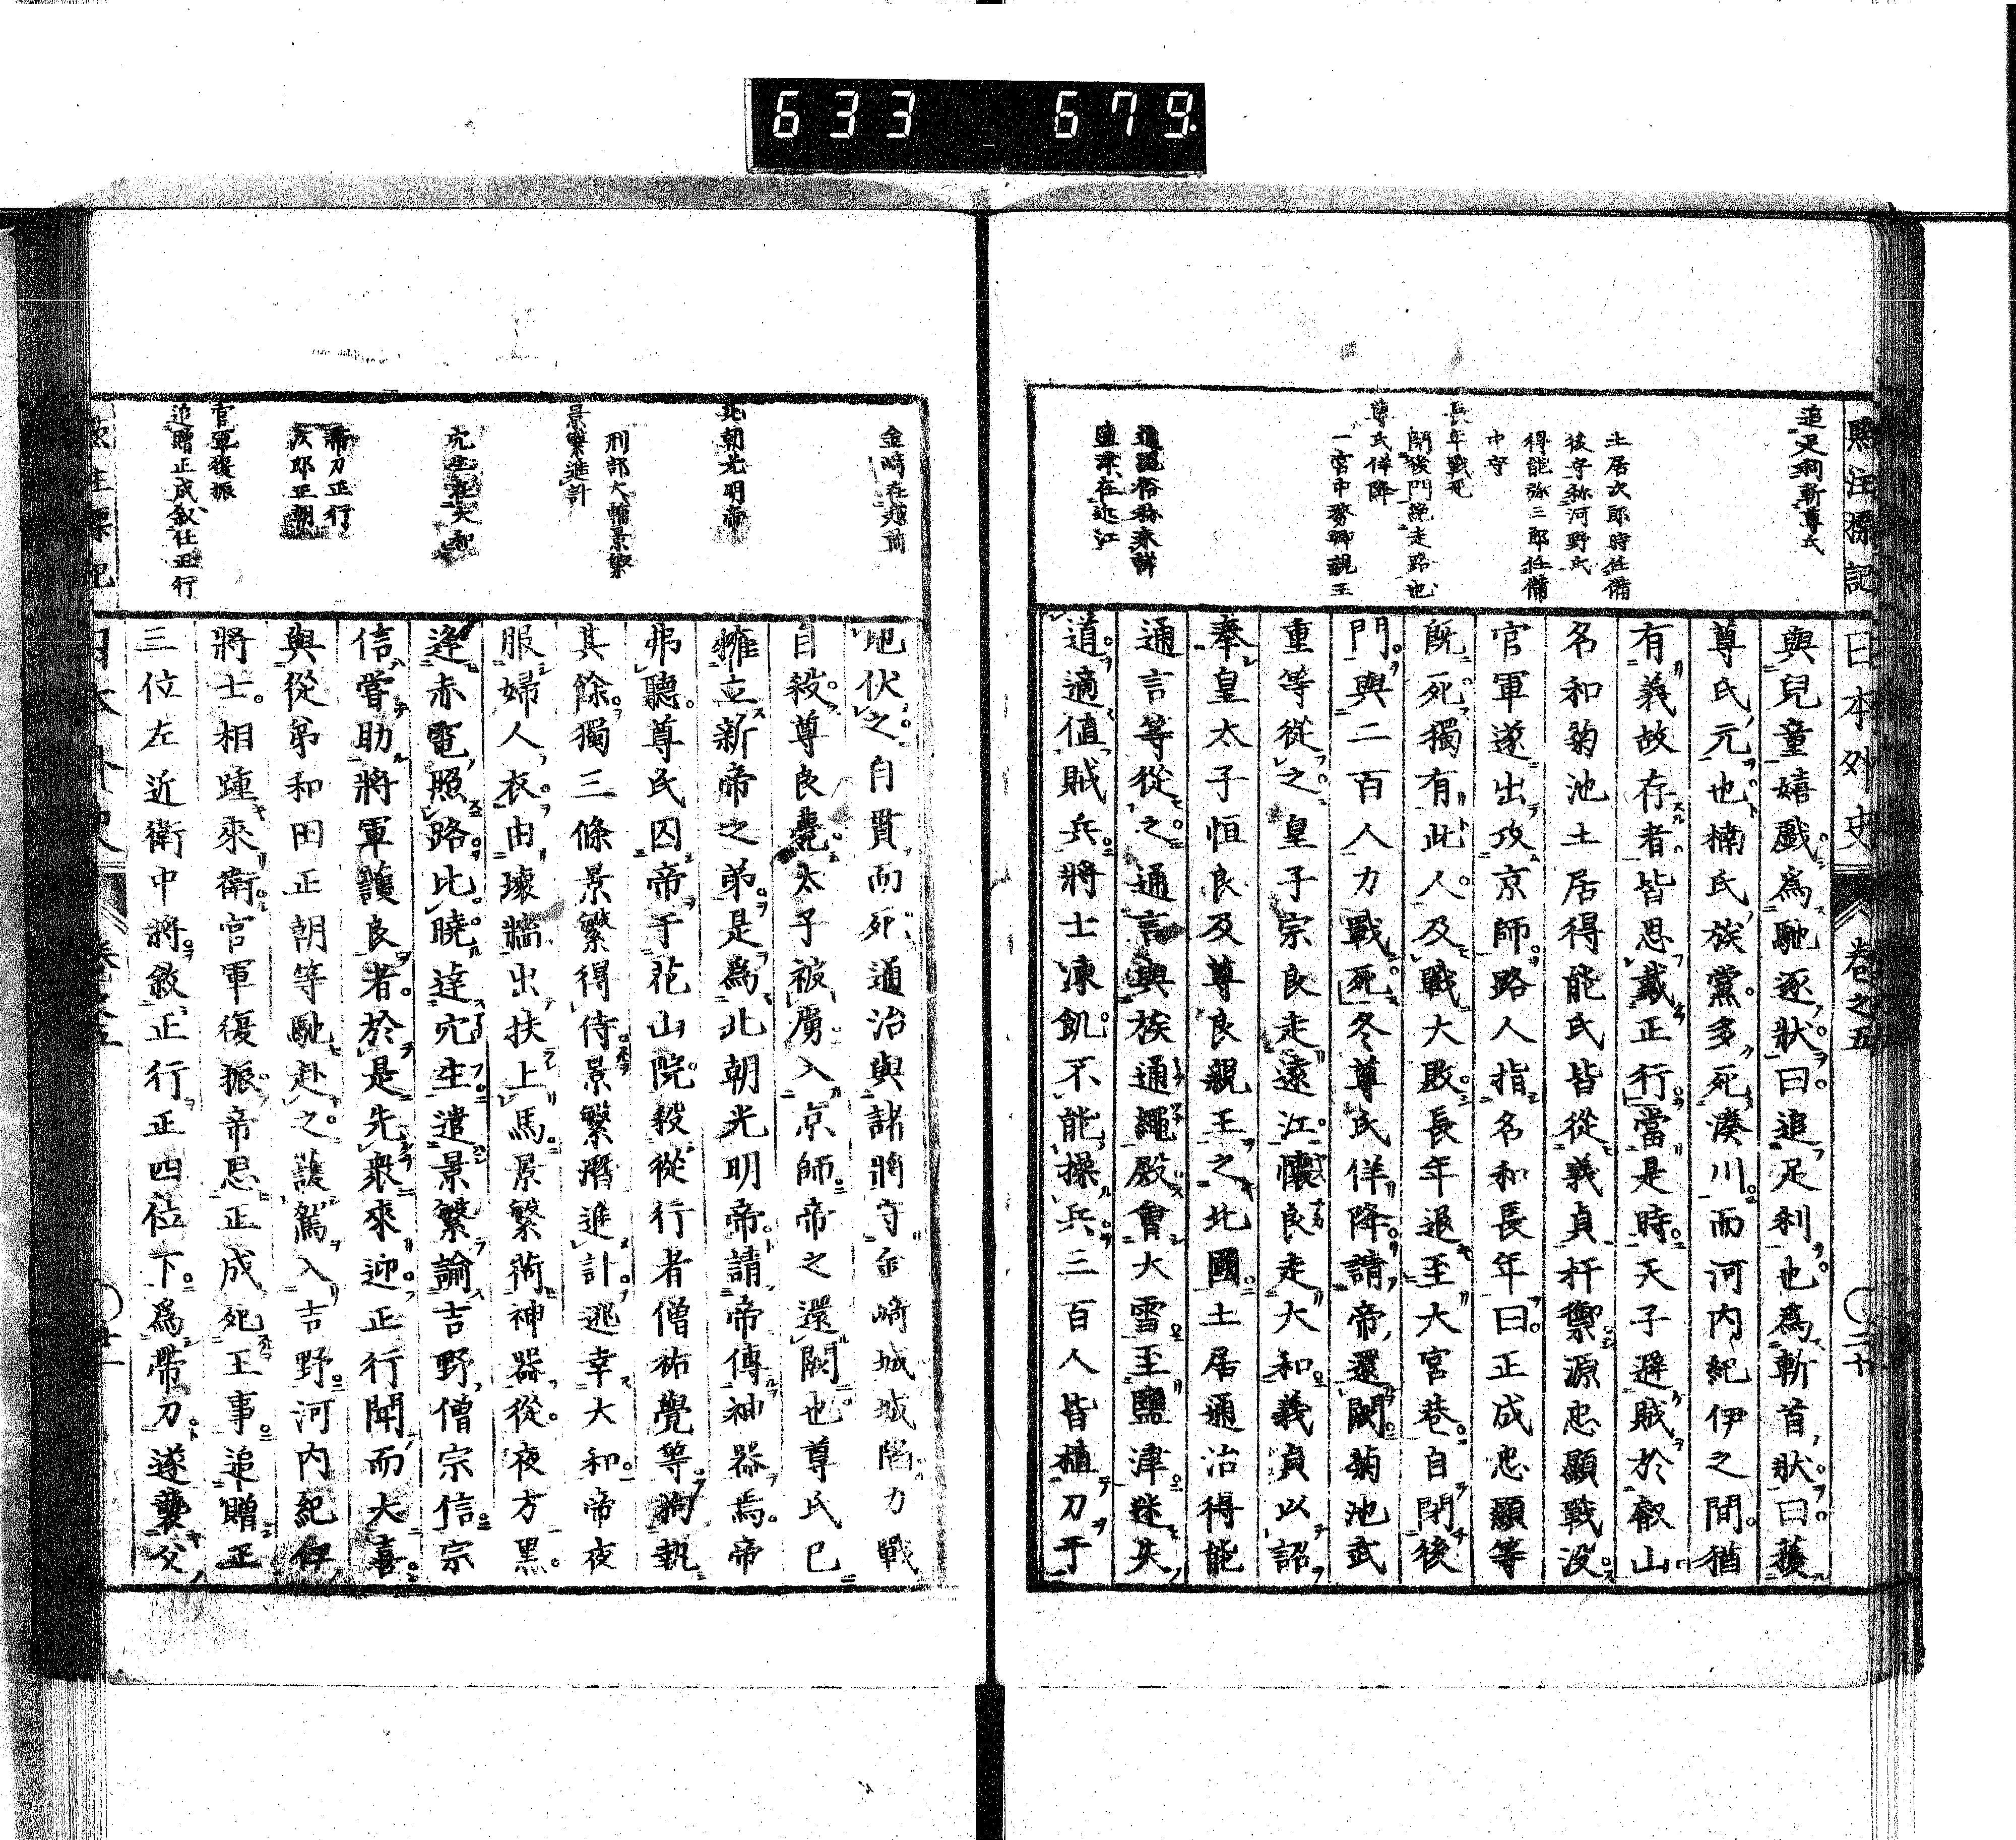 633 679.
點注標記
日本外史
卷之五
〇二十
追足利斬尊氏
土居次郎時任備
後守称河野氏
得能弥三郎任備
中守
長年戰死
閉後門絶走路也
尊氏佯降
一宮中務卿親王
鹽津在近江
與兒童嬉戲爲馳逐狀曰追足利也爲斬首狀曰獲
尊氏元也楠氏族黨多死湊川而河内紀伊之間猶
有義故存者皆思戴正行當是時天子避賊於叡山
名和菊池土居得能氏皆從義貞扞禦源忠顯戰沒
官軍遂出攻京師路人指名和長年曰正成忠顯等
既死獨有此人及戰大敗長年退至大宮巷自閉後
門與二百人力戰死冬尊氏佯降請帝還闕菊池武
重等從之皇子宗良走遠江懷良走大和義貞以詔
奉皇太子恒良及尊良親王之北國土居通治得能
通言等從之通言與族通繩殿會大雪至鹽津迷失
道適値賊兵將士凍飢不能操兵三百人皆植刀于
金崎在越前
北朝光明帝
刑部大輔景繁
景繁進計
穴生在大和
帶刀正行
次郎正朝
官軍復振
追贈正成敘任正行
地伏之自貫而死通治與諸將守金崎城城陷力戰
自殺尊良薨太子被虜入京師帝之還闕也尊氏已
擁立新帝之弟是爲北朝光明帝請帝傳神器焉帝
弗聽尊氏囚帝于花山院殺從行者僧祐覺等拘執
其餘獨三條景繁得侍景繁潛進計逃幸大和帝夜
服婦人衣由壞牆出扶上馬景繁荷神器從夜方黑
逢赤電照路比曉達穴生遣景繁諭吉野僧宗信宗
信嘗助將軍護良者於是先衆來迎正行聞而大喜
與從弟和田正朝等馳赴之護駕入吉野河内紀伊
將士相踵來衛官軍復振帝思正成死王事追贈正
三位左近衛中將敘正行正四位下爲帶刀遂襲父